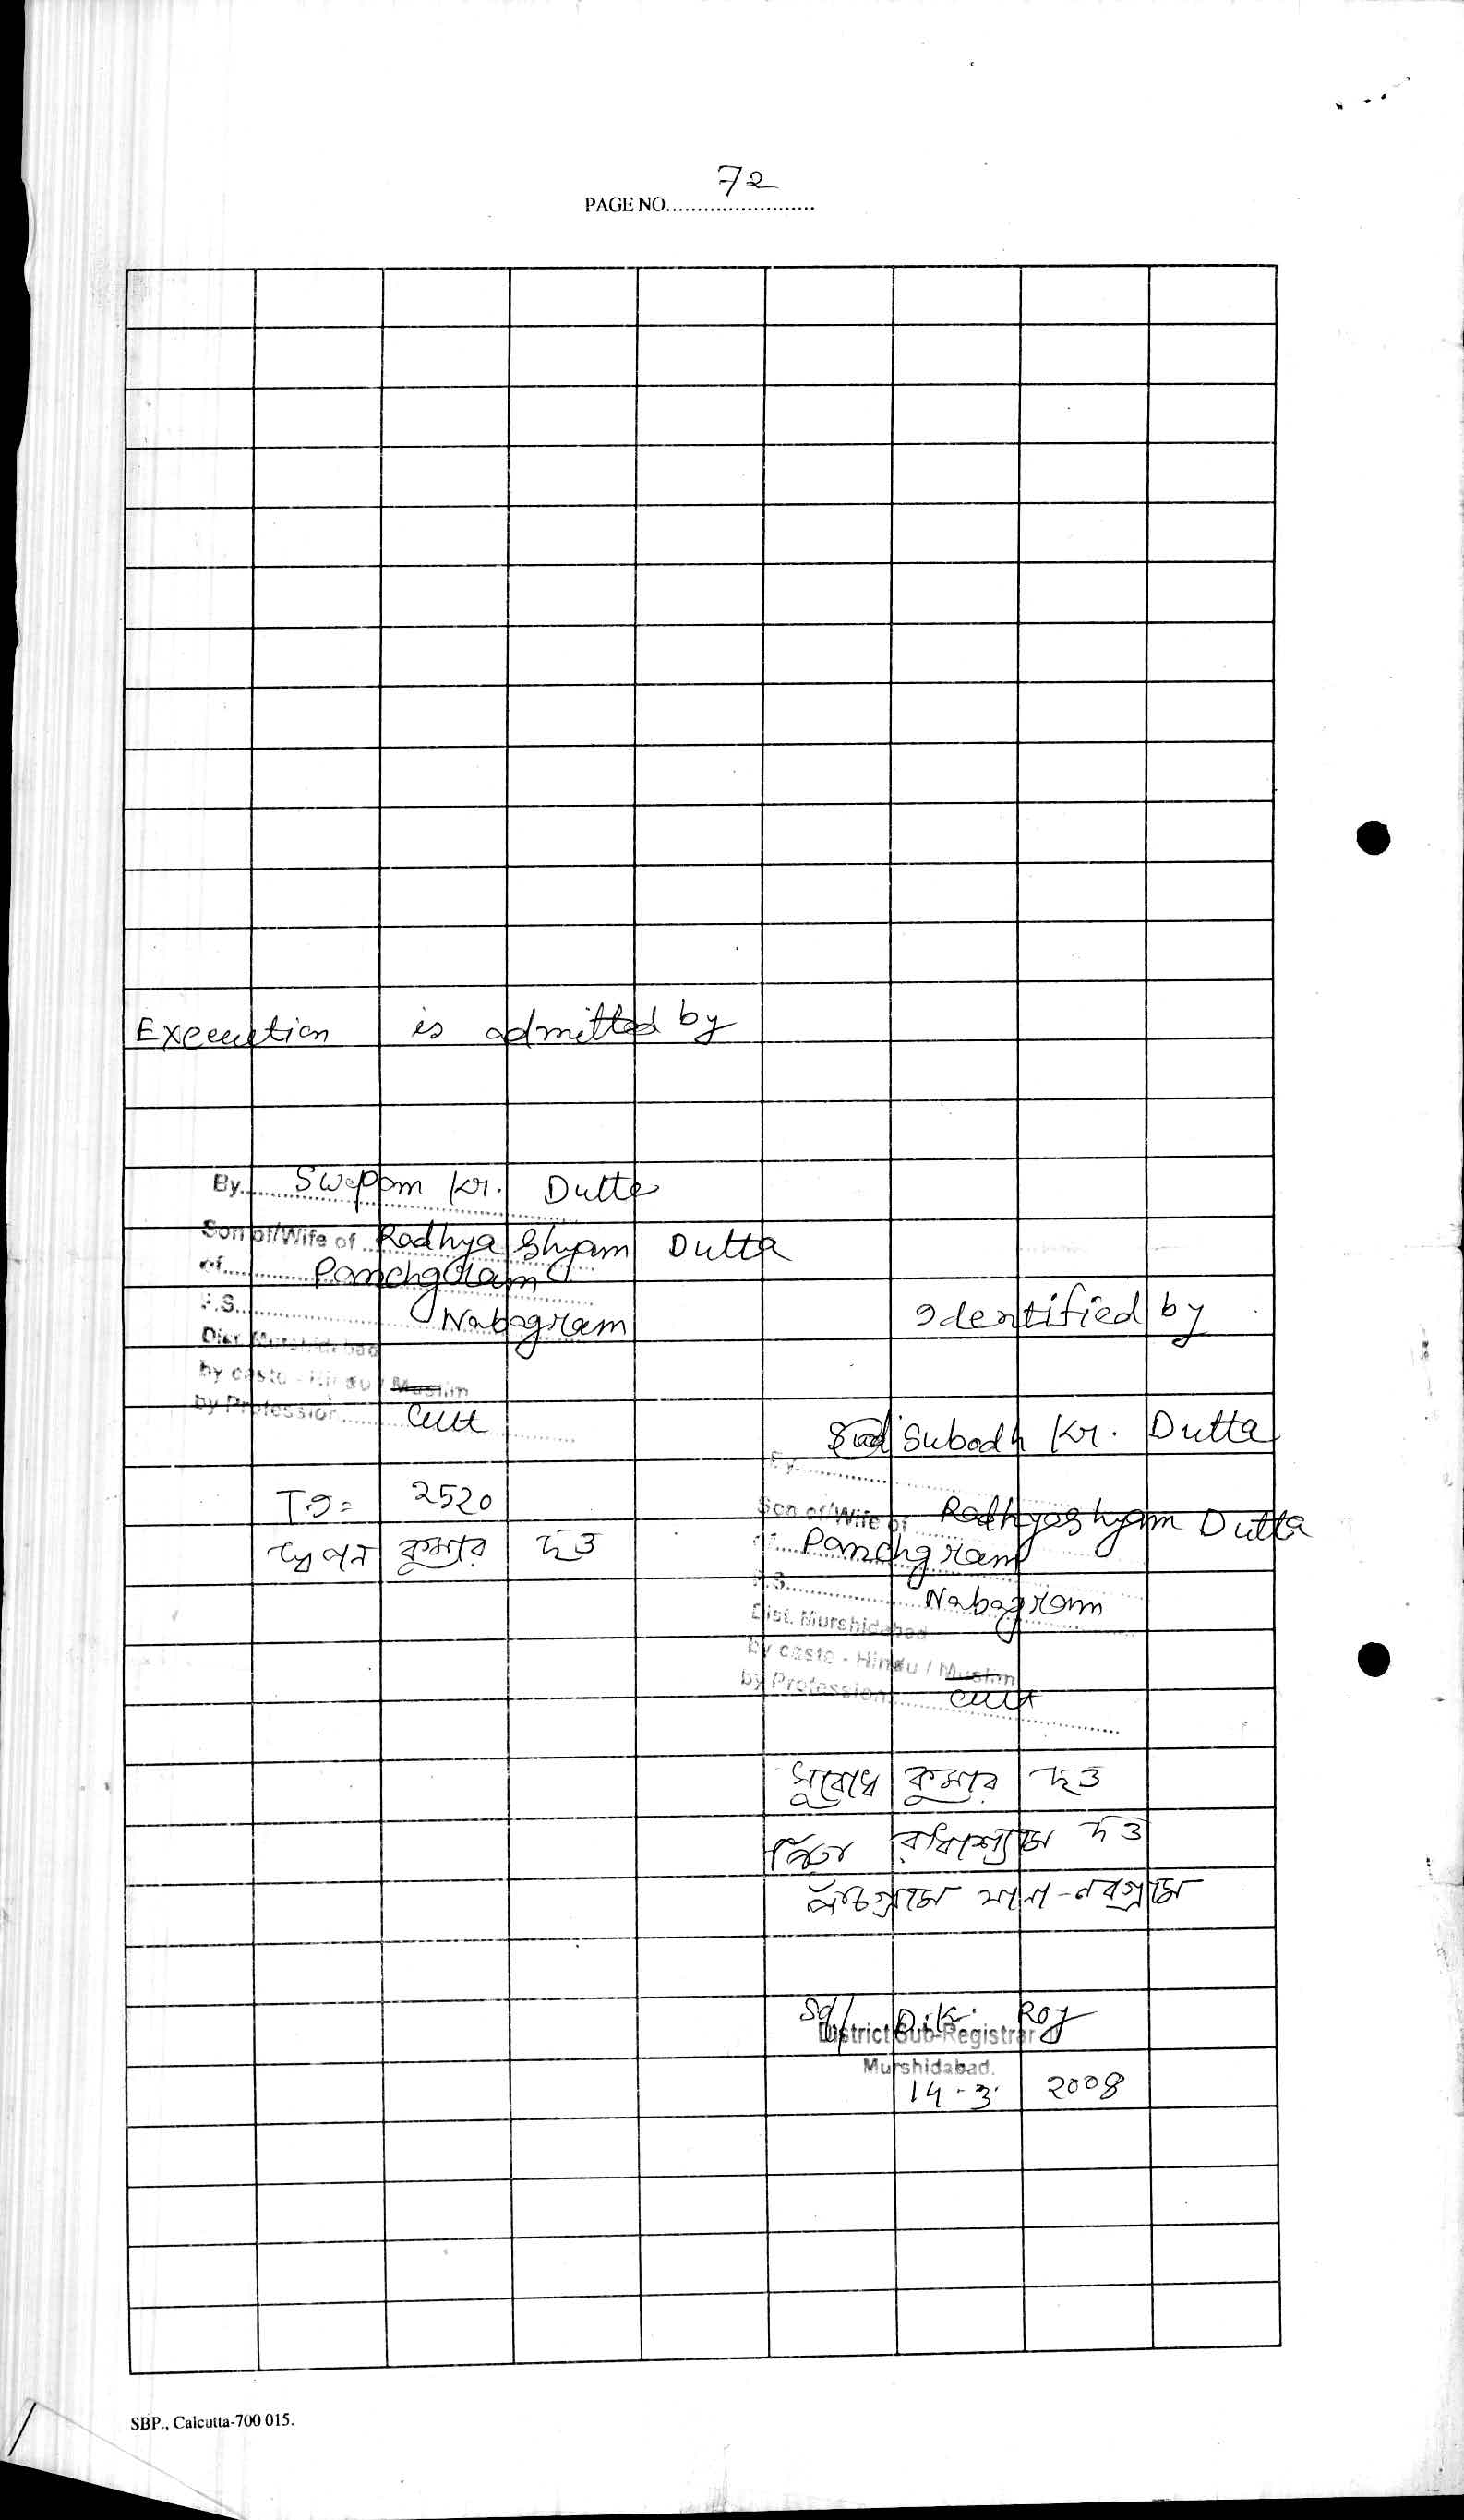 PAGE NO. 72
Execution is admitted by
By Swapam Kr. Dutta
Son of/Wife of Radhya Shyam Dutta
of Panchgram
P.S. Nabagram
Dist. Murshidabad
by caste - Hindu / Muslim
by Profession Cult
TI= 2520
স্বপন কুমার দত্ত
Identified by
Subodh Kr. Dutta
By
Son of/Wife of Radhyashyam Dutta
of Panchgram
P.S. Nabagram
Dist. Murshidabad
by caste - Hindu / Muslim
by Profession Cult
সুবোধ কুমার দত্ত
পিতা রাধাশ্যাম দত্ত
পাঁচগ্রাম থানা-নবগ্রাম
Sd/ D.K. Roy
District Sub-Registrar
Murshidabad.
14-3 2008
SBP., Calcutta-700 015.